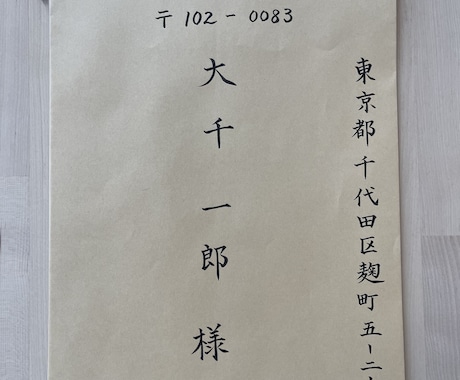 〒102-0083
東京都千代田区麹町五-二
大千一郎 様